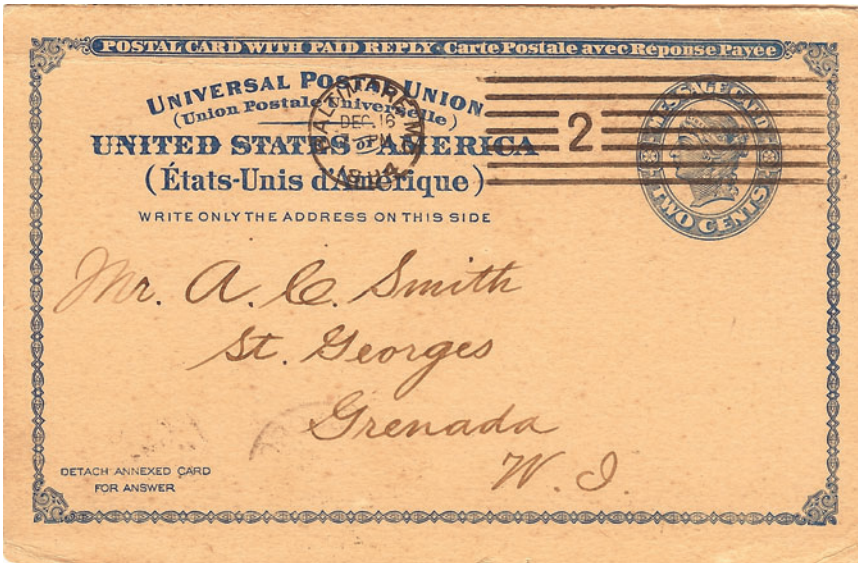 POSTAL CARD WITH PAID REPLY·Carte Postale avec Réponse Payée
UNIVERSAL POSTAL UNION
(Union Postale Universelle)
UNITED STATES OF AMERICA
(États-Unis d'Amérique)
WRITE ONLY THE ADDRESS ON THIS SIDE
BALTIMORE M
DEC. 16
2
MESSAGE CARD
TWO CENTS
Mr. A. C. Smith
St. Georges
Grenada
W. I.
DETACH ANNEXED CARD
FOR ANSWER